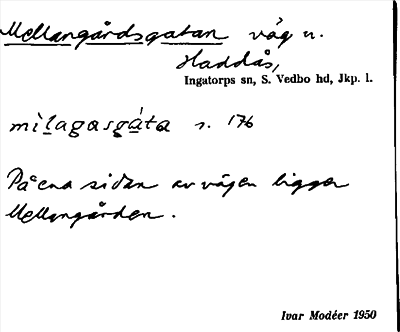 Mellangårdsgatan väg n.
Haddås,
Ingatorps sn, S. Vedbo hd, Jkp. l.
mìlagasgáta s. 176
På ena sidan av vägen ligger
Mellangården.
Ivar Modéer 1950